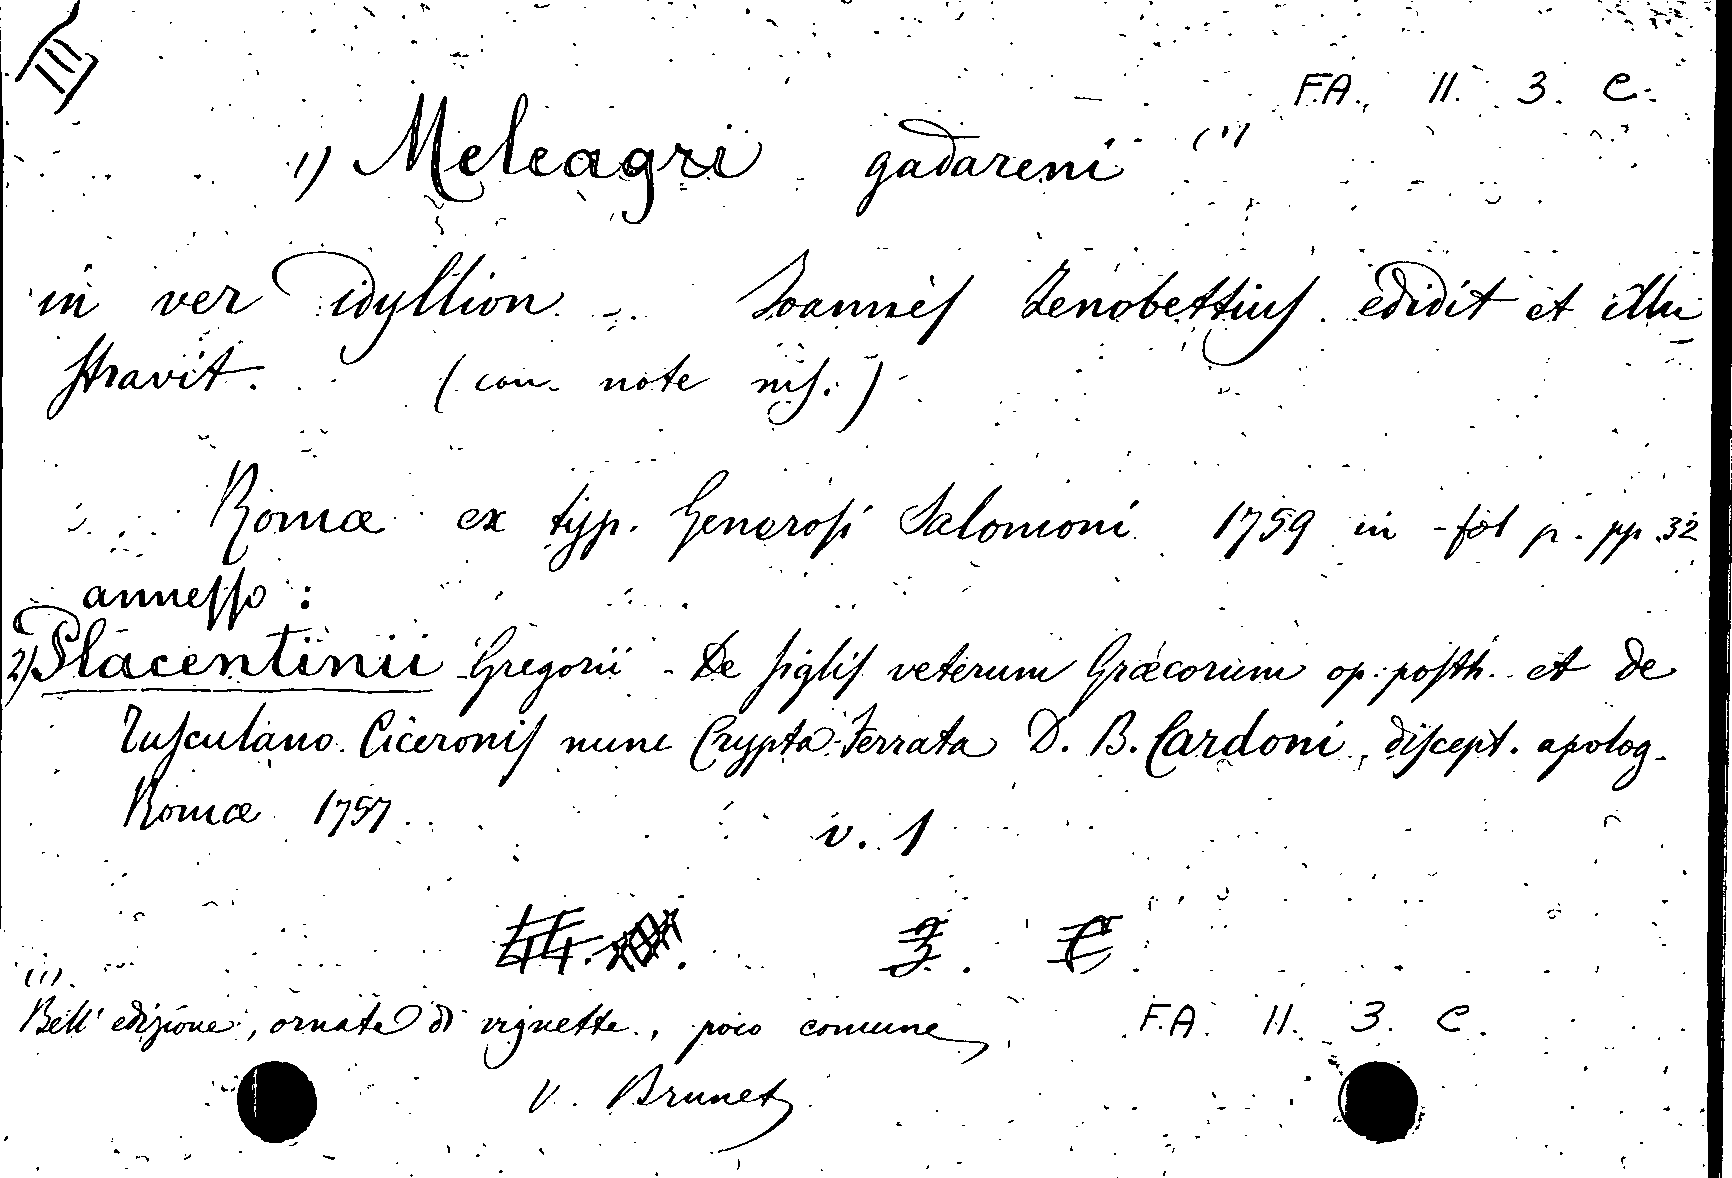 III
F.A. II. 3. C.
1) Meleagri gadareni (1)
in ver idyllion. Joannes Zenobettius edidit et illu
stravit. (con note ms.)
Romæ ex typ. Generosi Salomoni 1759 in-fol p. pp. 32
annesso:
2) Placentinii Gregorii - De siglis veterum Græcorum op. posth. et de
Tusculano Ciceronis nunc Crypta-Ferrata D. B. Cardoni, discept. apolog.
Romæ 1757
v. 1
3. C.
(1).
Bell' edizione, ornata di vignette, poco comune
F.A. II. 3. C.
V. Brunet